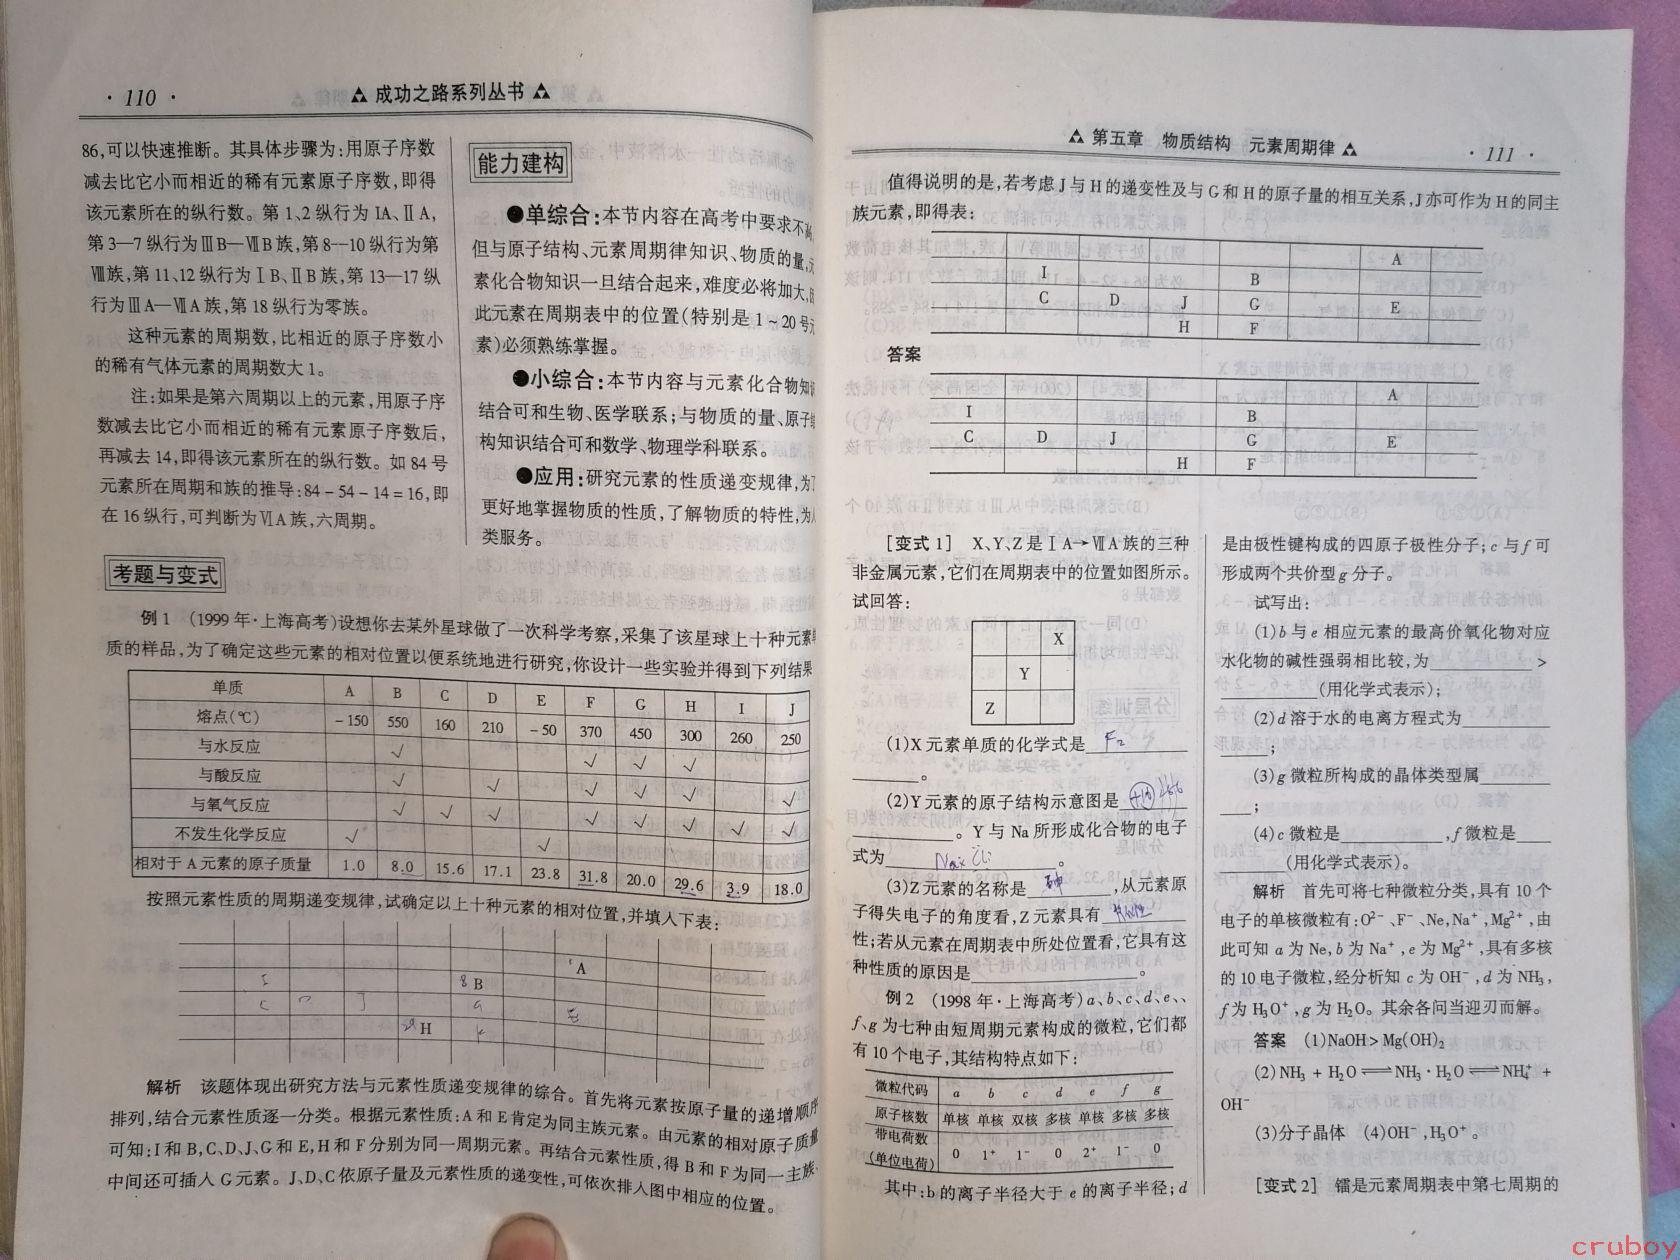 · 110 ·
成功之路系列丛书
86,可以快速推断。其具体步骤为:用原子序数
减去比它小而相近的稀有元素原子序数,即得
该元素所在的纵行数。第1、2纵行为ⅠA、ⅡA,
第3—7纵行为ⅢB—ⅦB族,第8—10纵行为第
Ⅷ族,第11、12纵行为ⅠB、ⅡB族,第13—17纵
行为ⅢA—ⅦA族,第18纵行为零族。
这种元素的周期数,比相近的原子序数小
的稀有气体元素的周期数大1。
注:如果是第六周期以上的元素,用原子序
数减去比它小而相近的稀有元素原子序数后,
再减去14,即得该元素所在的纵行数。如84号
元素所在周期和族的推导:84-54-14=16,即
在16纵行,可判断为ⅥA族,六周期。
能力建构
●单综合:本节内容在高考中要求不
但与原子结构、元素周期律知识、物质的量、
素化合物知识一旦结合起来,难度必将加大,
此元素在周期表中的位置(特别是1~20号
素)必须熟练掌握。
●小综合:本节内容与元素化合物知
结合可和生物、医学联系;与物质的量、原子
构知识结合可和数学、物理学科联系。
●应用:研究元素的性质递变规律,为
更好地掌握物质的性质,了解物质的特性,为
类服务。
考题与变式
例1 (1999年·上海高考)设想你去某外星球做了一次科学考察,采集了该星球上十种元素
质的样品,为了确定这些元素的相对位置以便系统地进行研究,你设计一些实验并得到下列结果
单质 A B C D E F G H I J
熔点(℃) -150 550 160 210 -50 370 450 300 260 250
与水反应 √ √ √ √
与酸反应 √ √ √ √ √ √
与氧气反应 √ √ √ √ √ √ √ √
不发生化学反应 √ √
相对于A元素的原子质量 1.0 8.0 15.6 17.1 23.8 31.8 20.0 29.6 3.9 18.0
按照元素性质的周期递变规律,试确定以上十种元素的相对位置,并填入下表:
A
I B
C D J G E
H F
解析 该题体现出研究方法与元素性质递变规律的综合。首先将元素按原子量的递增顺序
排列,结合元素性质逐一分类。根据元素性质:A和E肯定为同主族元素。由元素的相对原子质量
可知:I和B,C、D、J、G和E,H和F分别为同一周期元素。再结合元素性质,得B和F为同一主族,
中间还可插入G元素。J、D、C依原子量及元素性质的递变性,可依次排入图中相应的位置。
第五章 物质结构 元素周期律
· 111 ·
值得说明的是,若考虑J与H的递变性及与G和H的原子量的相互关系,J亦可作为H的同主
族元素,即得表:
A
I B
C D J G E
H F
答案
A
I B
C D J G E
H F
[变式1] X、Y、Z是ⅠA→ⅦA族的三种
非金属元素,它们在周期表中的位置如图所示。
试回答:
X
Y
Z
(1)X元素单质的化学式是 F₂
。
(2)Y元素的原子结构示意图是
。Y与Na所形成化合物的电子
式为 。
(3)Z元素的名称是 砷 ,从元素原
子得失电子的角度看,Z元素具有
性;若从元素在周期表中所处位置看,它具有这
种性质的原因是 。
例2 (1998年·上海高考)a、b、c、d、e、、
f、g为七种由短周期元素构成的微粒,它们都
有10个电子,其结构特点如下:
微粒代码 a b c d e f g
原子核数 单核 单核 双核 多核 单核 多核 多核
带电荷数
(单位电荷) 0 1⁺ 1⁻ 0 2⁺ 1⁻ 0
其中:b的离子半径大于e的离子半径;d
是由极性键构成的四原子极性分子;c与f可
形成两个共价型g分子。
试写出:
(1)b与e相应元素的最高价氧化物对应
水化物的碱性强弱相比较,为 >
(用化学式表示);
(2)d溶于水的电离方程式为
;
(3)g微粒所构成的晶体类型属
;
(4)c微粒是 ,f微粒是
(用化学式表示)。
解析 首先可将七种微粒分类,具有10个
电子的单核微粒有:O²⁻、F⁻、Ne,Na⁺,Mg²⁺,由
此可知a为Ne,b为Na⁺,e为Mg²⁺,具有多核
的10电子微粒,经分析知c为OH⁻,d为NH₃,
f为H₃O⁺,g为H₂O。其余各问当迎刃而解。
答案 (1)NaOH>Mg(OH)₂
(2)NH₃+H₂O⇌NH₃·H₂O⇌NH₄⁺+
OH⁻
(3)分子晶体 (4)OH⁻,H₃O⁺。
[变式2] 镭是元素周期表中第七周期的
cruboy